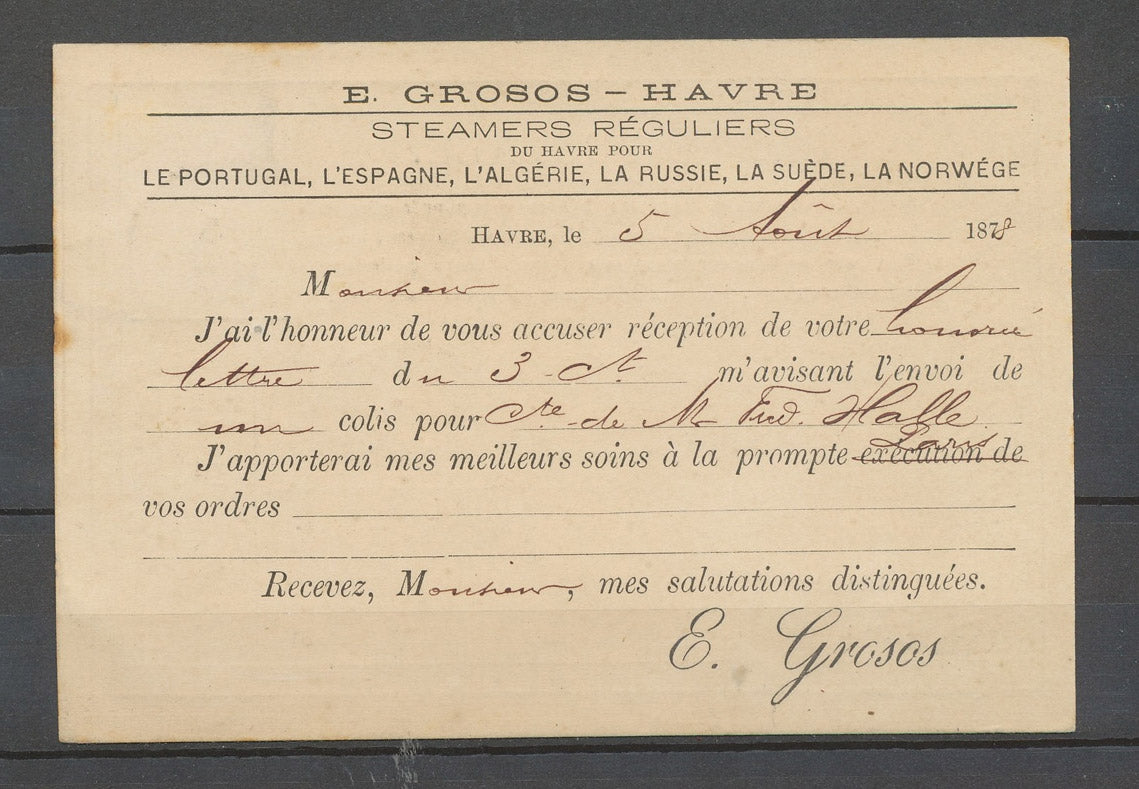 E. GROSOS – HAVRE
STEAMERS RÉGULIERS
DU HAVRE POUR
LE PORTUGAL, L'ESPAGNE, L'ALGÉRIE, LA RUSSIE, LA SUÈDE, LA NORWÉGE
HAVRE, le 5 Août 1878
Monsieur
J'ai l'honneur de vous accuser réception de votre honorée
lettre du 3 Ct m'avisant l'envoi de
un colis pour Cte de M Fred. Halle
Paris
J'apporterai mes meilleurs soins à la prompte exécution de
vos ordres
Recevez, Monsieur, mes salutations distinguées.
E. Grosos